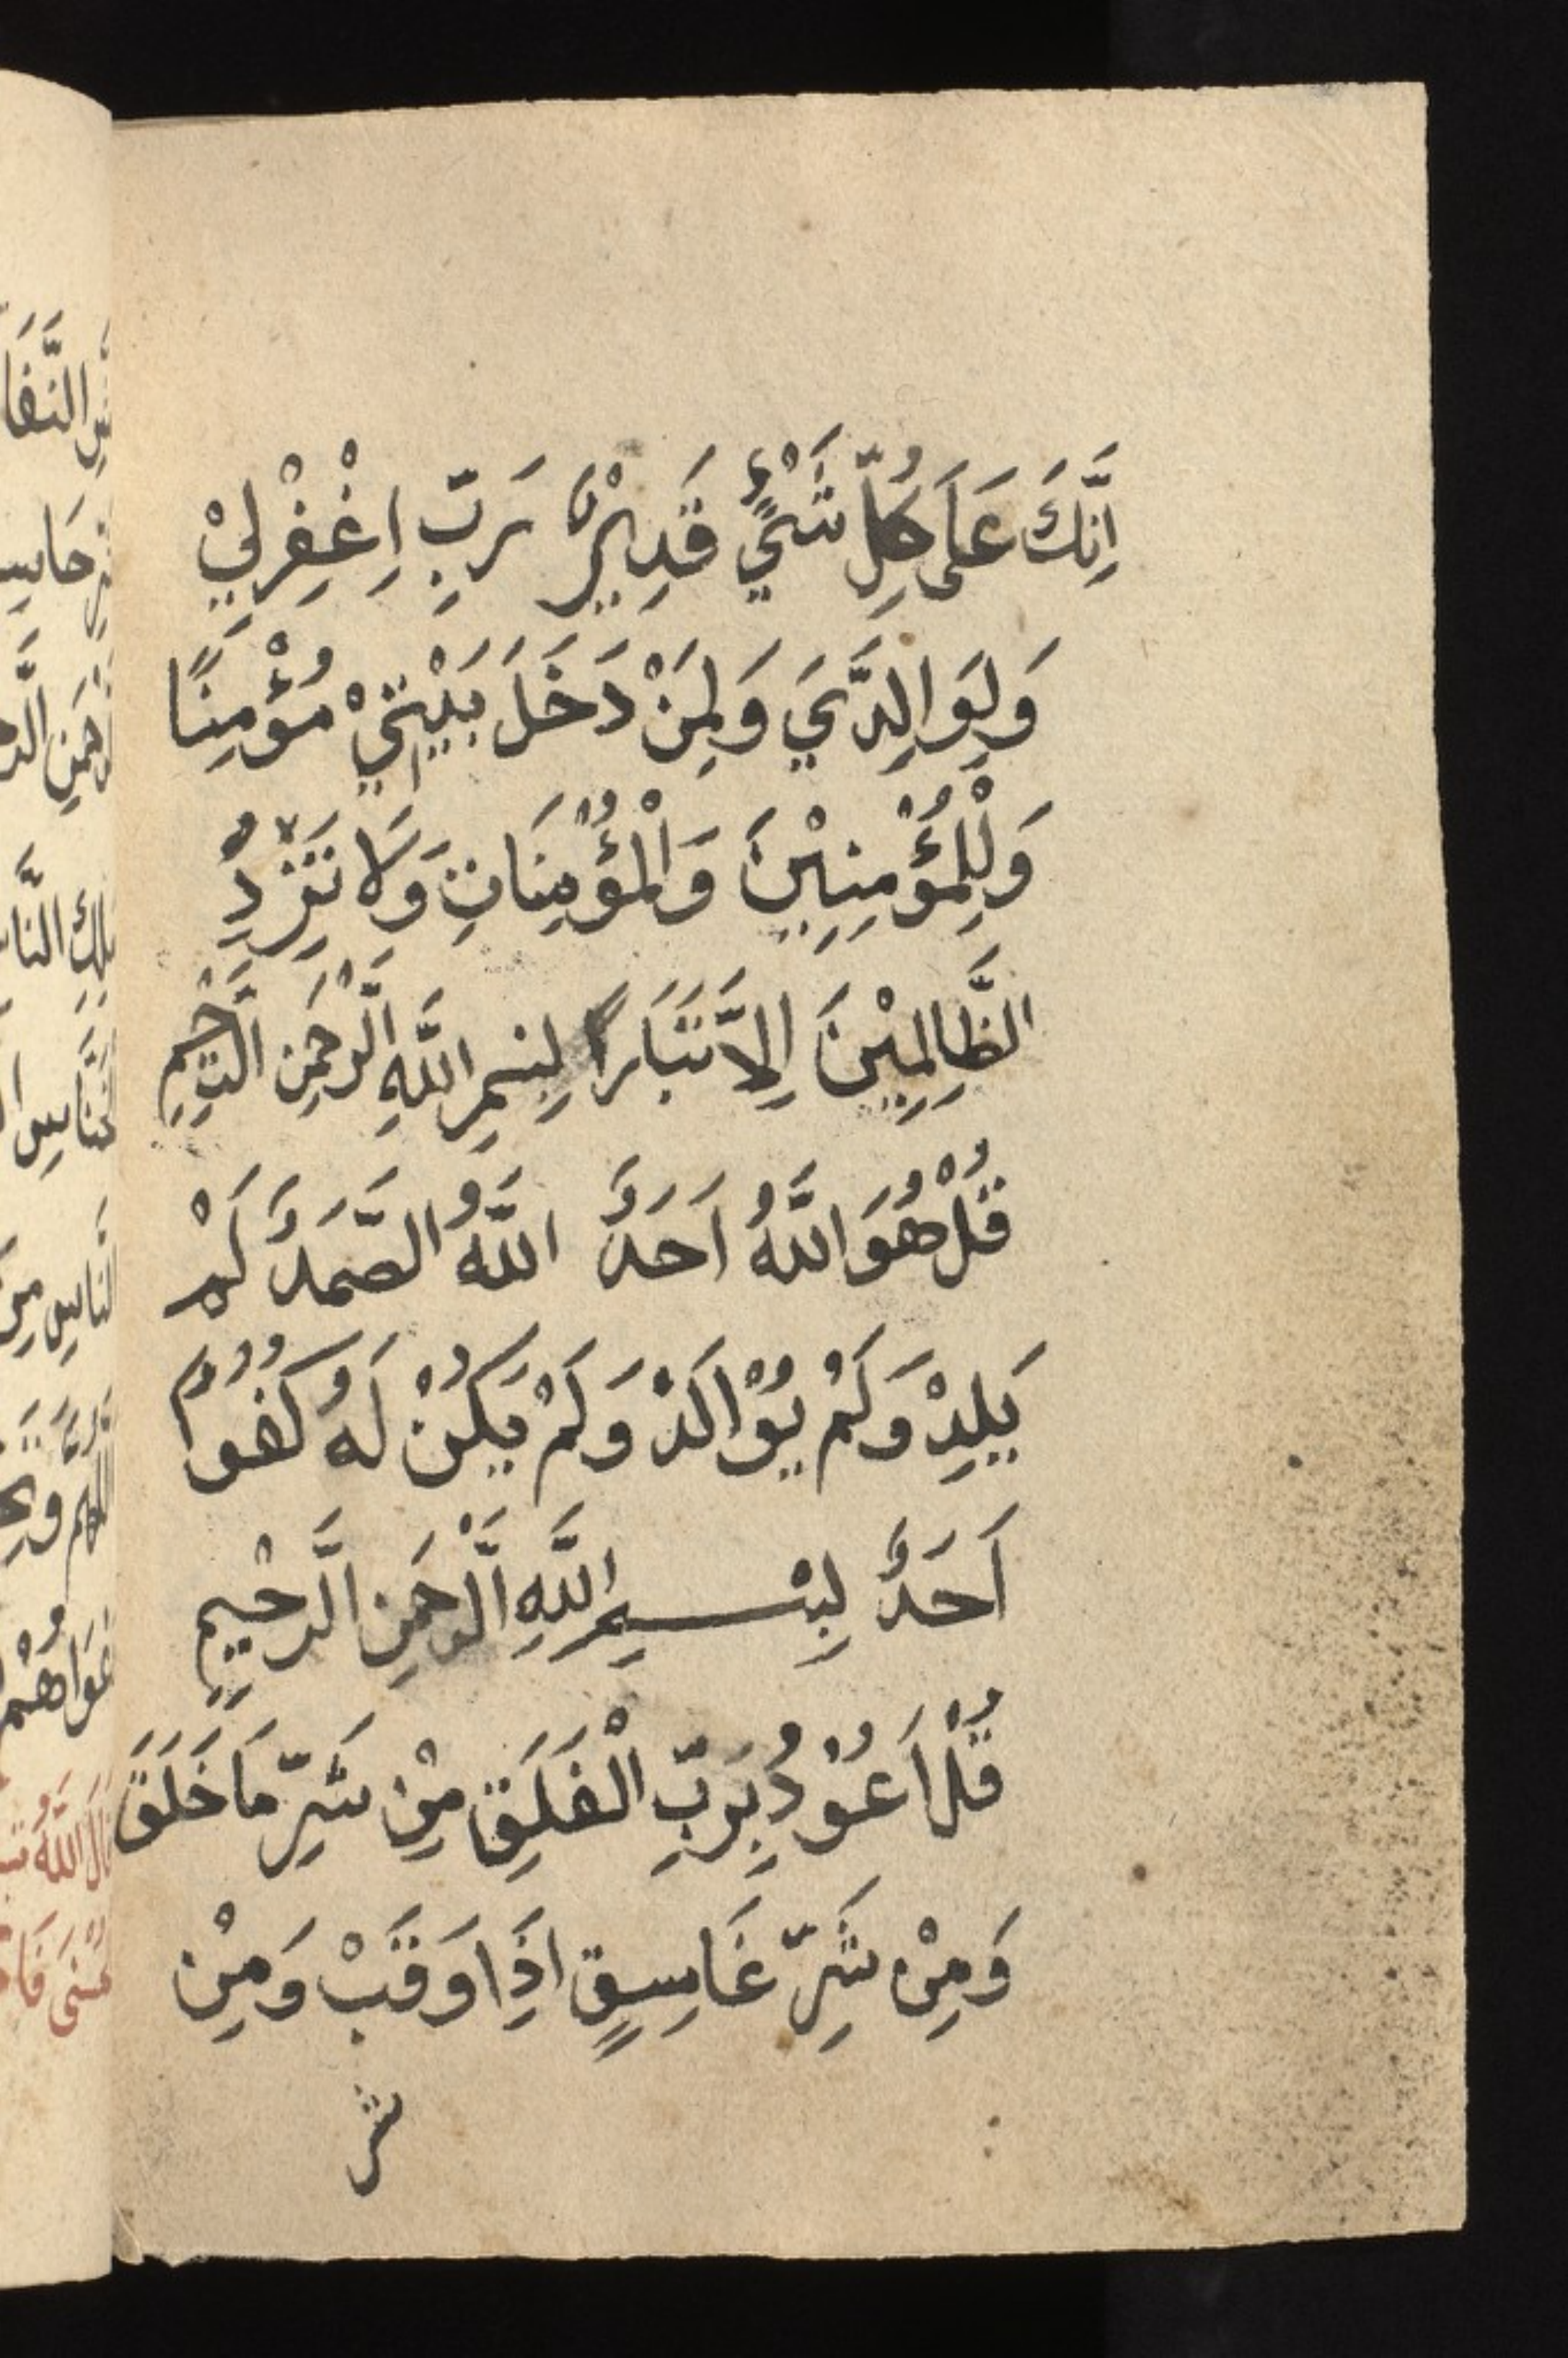 اِنَّكَ عَلَى كُلِّ شَيْءٍ قَدِيْرٌ رَبِّ اِغْفِرْلِيْ
وَلِوَالِدَّيَ وَلِمَنْ دَخَلَ بَيْتِيْ مُؤْمِنًا
وَلِلْمُؤْمِنِيْنَ وَالْمُؤْمِنَاتِ وَلَا تَزِدِ
الظَّالِمِيْنَ اِلَّا تَبَارًا بِسْمِ اللَّهِ الَّرْحَمنِ الَّرحْيِمِ
قُلْ هُوَ اللَّهُ اَحَدٌ اللَّهُ الصَّمَدُ لَمْ
يَلِدْ وَلَمْ يُوْالَدْ وَلَمْ يَكُنْ لَهُ كُفُوًا
اَحَدٌ بِسْمِ اللَّهِ الَّرْحَمنِ الَّرحْيِمِ
قُلْ اَعُوْدُ بِرَبِّ الْفَلَقِ مِنْ شَرِّ مَا خَلَقَ
وَمِنْ شَرِّ غَاسِقٍ اِذَا وَقَبْ وَمِنْ
شر